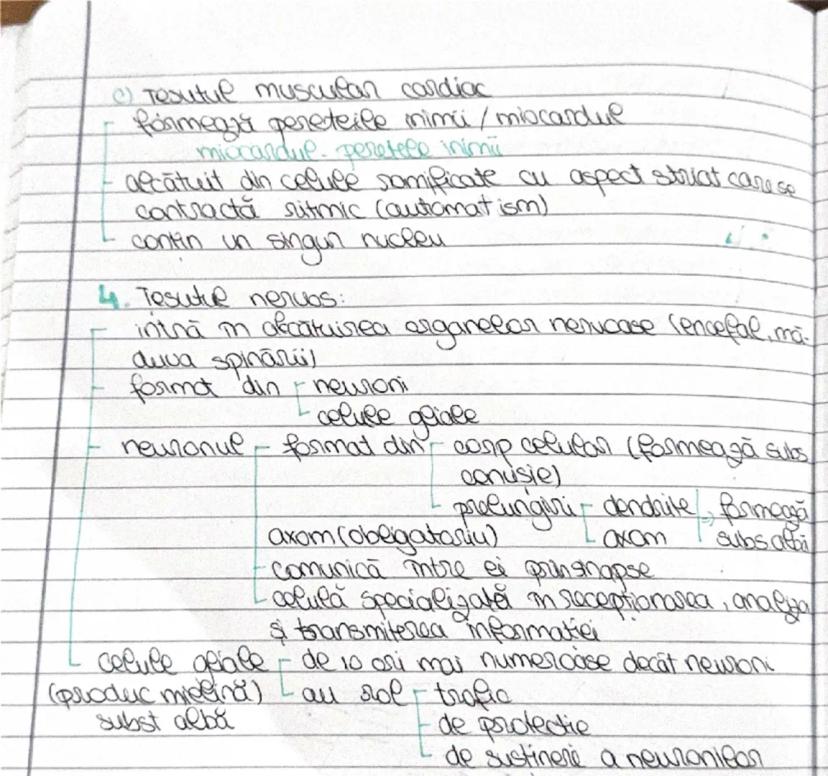 c) Țesutul muscular cardiac
- formează pereteile inimii / miocardul
miocardul - peretele inimii
- alcătuit din celule ramificate cu aspect striat care se
contractă ritmic (automatism)
- conțin un singur nucleu
4. Țesutul nervos:
- intră în alcătuirea organelor nervoase (encefal, mă-
duva spinării)
- format din - neuroni
- celule gliale
- neuronul - format din - corp celular (formează subs
cenușie)
- prelungiri - dendrite => formează
axom (obligatoriu) - axom subs albă
- comunică între ei prin sinapse
- celulă specializată în recepționarea, analiza
și transmiterea informației
- celule gliale - de 10 ori mai numeroase decât neuroni
(produc mielină) - au rol - trofic
subst albă - de protecție
- de susținere a neuronilor